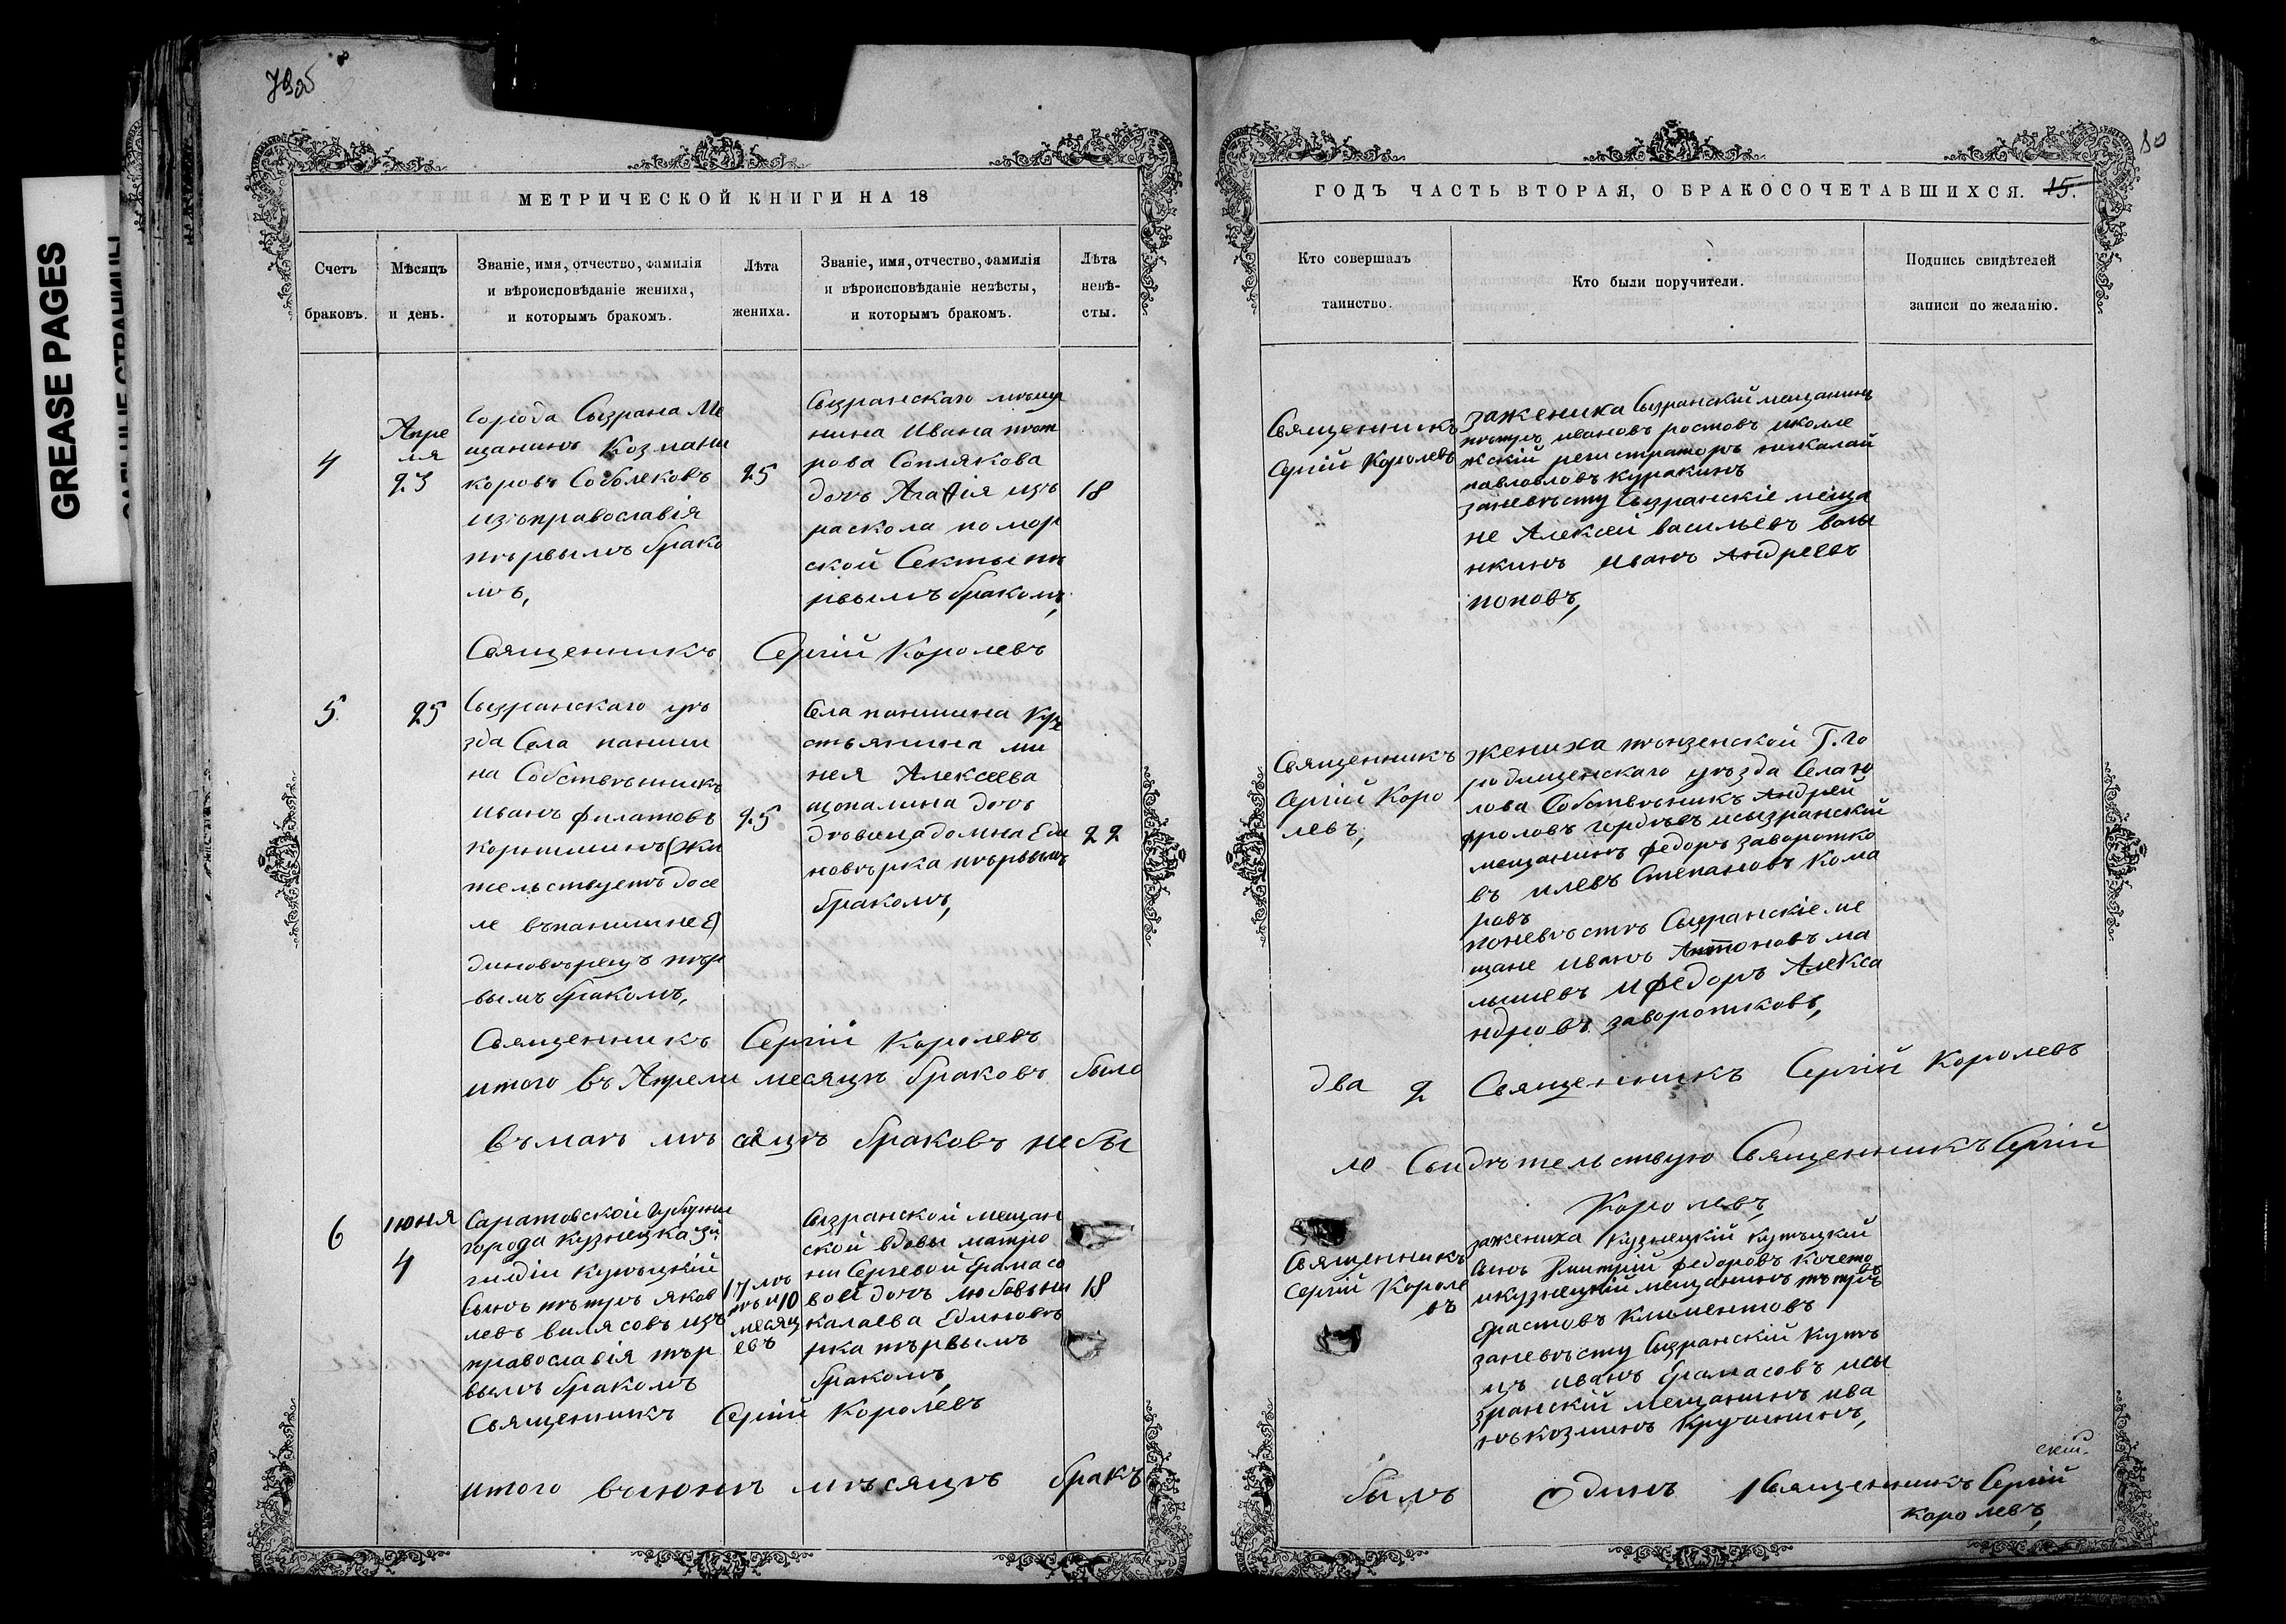 GREASE PAGES
80
МЕТРИЧЕСКОЙ КНИГИ НА 18
Счетъ браковъ.
Мѣсяцъ и день.
Званіе, имя, отчество, фамилія
и вѣроисповѣданіе жениха,
и которымъ бракомъ.
Лѣта
жениха.
Званіе, имя, отчество, фамилія
и вѣроисповѣданіе невѣсты,
и которымъ бракомъ.
Лѣта
невѣ-
сты.
4
Апре
ля
23
Города Сызрана Ме
щанинъ Козма ни
коровъ Соболековъ
изъ православія
пѣрвымъ брако
мъ,
25
Сызранскаго мѣща
нина Ивана пѣт
рова Соплякова
дочь Агафія изъ
раскола помор
ской Секты пѣ
рвымъ бракомъ,
18
Священникъ Сергій Королевъ
5
25
Сызранскаго уѣ
зда Села панши
на Собствѣнникъ
иванъ филатовъ
корнишинъ (жи
тельствуетъ досе
ле въ паншинѣ) Е
диновѣрецъ пѣр
вымъ бракомъ,
25
Села паншина Кре
стьянина ми
нея Алексеева
щопалина дочь
дѣвица домна Еди
новѣрка пѣрвымъ
бракомъ,
22
Священникъ Сергій Королевъ
итого въ Апрели месяцѣ браковъ было
въ маѣ мѣсяцѣ браковъ не бы
6
июня
4
Саратовской Губерни
города Кузнецка 3й
гилдіи Купѣцкій
Сынъ пѣтръ яков
левъ вилясовъ изъ
православія пѣр
вымъ бракомъ
17 лѣ
тъ и 10
месяц
евъ
Сызранской мещан
ской вдовы матро
ни Сергевой Ерамасо
вой дочь любовь ни
калаева Единовѣ
рка пѣрвымъ
бракомъ,
18
Священникъ Сергій Королевъ
итого въ июнѣ мѣсяцѣ бракъ
ГОДЪ ЧАСТЬ ВТОРАЯ, О БРАКОСОЧЕТАВШИХСЯ. 15.
Кто совершалъ
таинство.
Кто были поручители.
Подпись свидѣтелей
записи по желанію.
Священникъ
Сергій Королевъ
за женика Сызранской мещанинъ
пѣтръ ивановъ ростовъ и колле
жскій регистраторъ николай
павловловъ куракинъ
за невѣсту Сызранскіе меща
не Алексей васильевъ волы
нкинъ иванъ Андреевъ
поповъ,
Священникъ
Сергій Коро
левъ,
жениха пѣнзенской Г. Го
родищенскаго уѣзда Села ю
лова Собствѣникъ Андрей
фроловъ гордѣевъ и сызранский
мещанинъ федоръ заворотко
въ и левъ Степановъ Кома
ровъ
по невѣстѣ Сызранскіе ме
щане иванъ Антоновъ ма
лышевъ и федоръ Алекса
ндровъ заворотковъ,
два 2 Священникъ Сергій Королевъ
ло Свидѣтельствую Священникъ Сергій
Королевъ,
Священникъ
Сергій Короле
въ
за жениха Кузнецкій Купѣцкий
Сынъ Дмитрій федоровъ Кочето
въ
и кузнецкій мещанинъ пѣтръ
Ерастовъ Климентовъ
за невѣсту Сызранскій Купѣ
цъ иванъ Ерамасовъ и сы
зранскій мещанинъ ива
нъ козминъ Кручининъ,
былъ Одинъ 1 Священникъ Сергій
Королевъ,